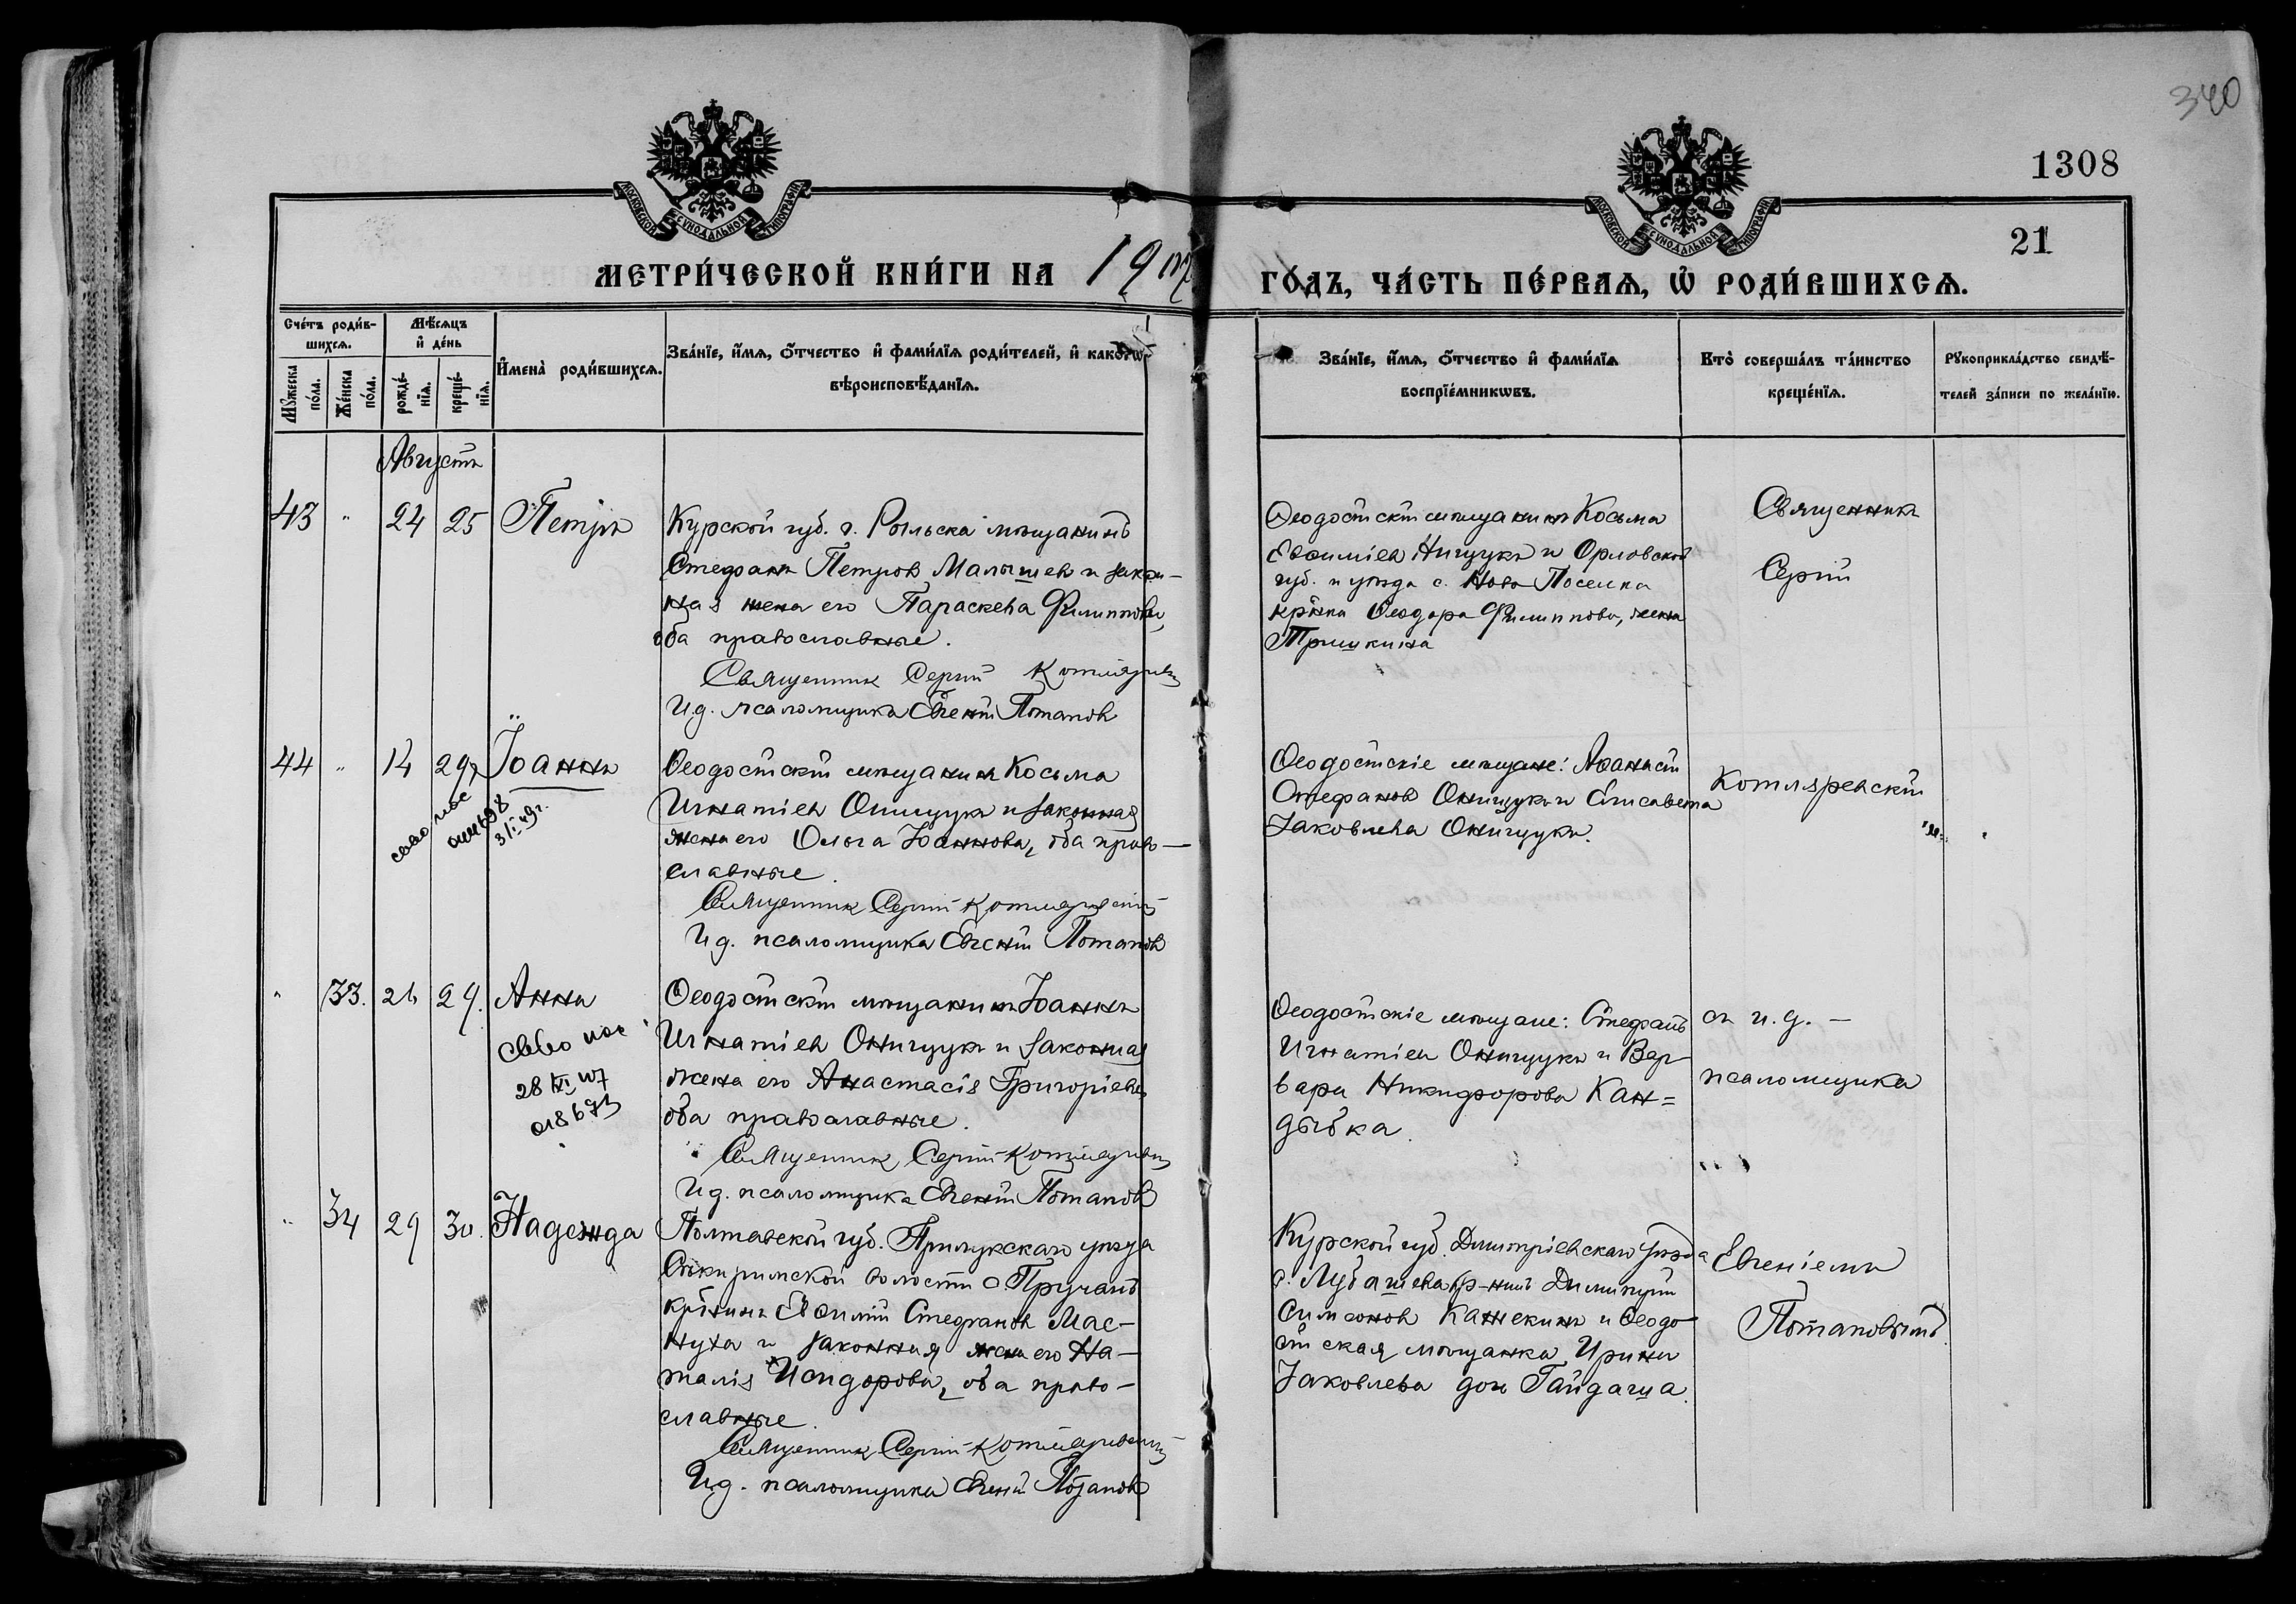 340
1308
21
МОСКОВСКОЙ СУНОДАЛЬНОЙ ТИПОГРАФІИ
МОСКОВСКОЙ СУНОДАЛЬНОЙ ТИПОГРАФІИ
МЕТРИ́ЧЕСКОЙ КНИ́ГИ НА 19
ГО́ДЪ, ЧА́СТЬ ПЕ́РВАѦ, Ѡ҆ РОДИ́ВШИХСѦ.
Сче́тъ роди́в-
шихсѧ.
Мѣ́сѧцъ
и҆ де́нь
Мꙋ́жеска
по́ла.
Же́нска
по́ла.
рожде́-
нїѧ.
креще́-
нїѧ.
И҆мена̀ роди́вшихсѧ.
Зва́нїе, и҆́мѧ, ѻ҆́тчество и҆ фами́лїѧ роди́телей, и҆ како́гѡ
вѣроисповѣ́данїѧ.
Зва́нїе, и҆́мѧ, ѻ҆́тчество и҆ фами́лїѧ
воспрїе́мникѡвъ.
Кто̀ соверша́лъ та́инство
креще́нїѧ.
Рꙋкоприкла́дство свидѣ́-
телей за́писи по жела́нїю.
Августъ
43 " 24 25 Петръ
Курской губ. г. Рыльска мѣщанинъ
Стефанъ Петровъ Малышев и закон-
ная жена его Параскева Филиппова,
оба православные.
Священник Сергій Котляревскій
И.д. псаломщика Евгеній Потаповъ
Ѳеодосійскій мѣщанинъ Косьма
Евѳиміев Онищукъ и Орловской
губ. и уѣзда с. Ново Поселка
кр-нка Ѳеодора Филиппова, жена
Тришкина
Священникъ
Сергій
44 " 14 29 Іоаннъ
31.I.49г.
Ѳеодосійскій мѣщанин Косьма
Игнатіев Онищукъ и законная
жена его Ольга Іоаннова, оба право-
славные.
Священник Сергій Котляревскій
И.д. псаломщика Евгеній Потаповъ
Ѳеодосійскіе мѣщане: Аѳанасій
Стефановъ Онищукъ и Елисавета
Іаковлева Онищукъ.
Котляревскій
" 33. 26 29. Анна
28 VI
Ѳеодосійскій мѣщанинъ Іоаннъ
Игнатіев Онищукъ и законная
жена его Анастасія Григоріева,
оба православные.
Священник Сергій Котляревскій
И.д. псаломщика Евгеній Потаповъ
Ѳеодосійскіе мѣщане: Стефанъ
Игнатіевъ Онищукъ и Вар-
вара Никифорова Кан=
дыбка.
съ и.д. –
псаломщика
" 34 29 30. Надежда
Полтавской губ. Прилукскаго уѣзда
волости с.
кр-нинъ Евѳимій Стефановъ Мас-
нуха и законная жена его На-
талія Исидорова, оба право-
славные.
Священник Сергій Котляревскій
И.д. псаломщика Евгеній Потаповъ
Курской губ. Дмитріевскаго уѣзда
с. кр-нинъ Димитрій
Симеонов Канекинъ и Ѳеодо-
сійская мѣщанка Ирина
Іаковлева дочь Гайдаша.
Евгеніемъ
Потаповымъ.